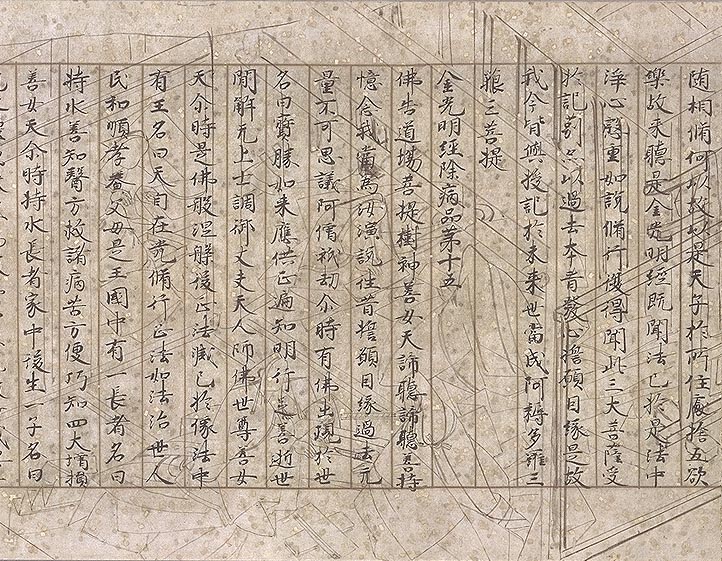 随相脩何以故以是天子於所住處捨五欲
樂故来聽是金光明經既聞法已於是法中
淨心慇重如說脩行復得聞此三大菩薩受
於記莂亦以過去本昔發心擔願因緣是故
我今皆與授記於未来世當成阿耨多羅三
藐三菩提
金光明經除病品苐十五
佛告道場菩提樹神善女天諦聽諦聽善持
憶念我當為汝演說往昔擔願因緣過去无
量不可思議阿僧祇劫尒時有佛出現於世
名曰寶勝如来應供正遍知明行足善逝世
間解无上士調御丈夫天人師佛世尊善女
天尒時是佛般涅槃後正法滅已於像法中
有王名曰天自在光脩行正法如法治世人
民和順孝養父母是王國中有一長者名曰
持水善知醫方救諸病苦方便巧知四大增損
善女天尒時持水長者家中後生一子名曰